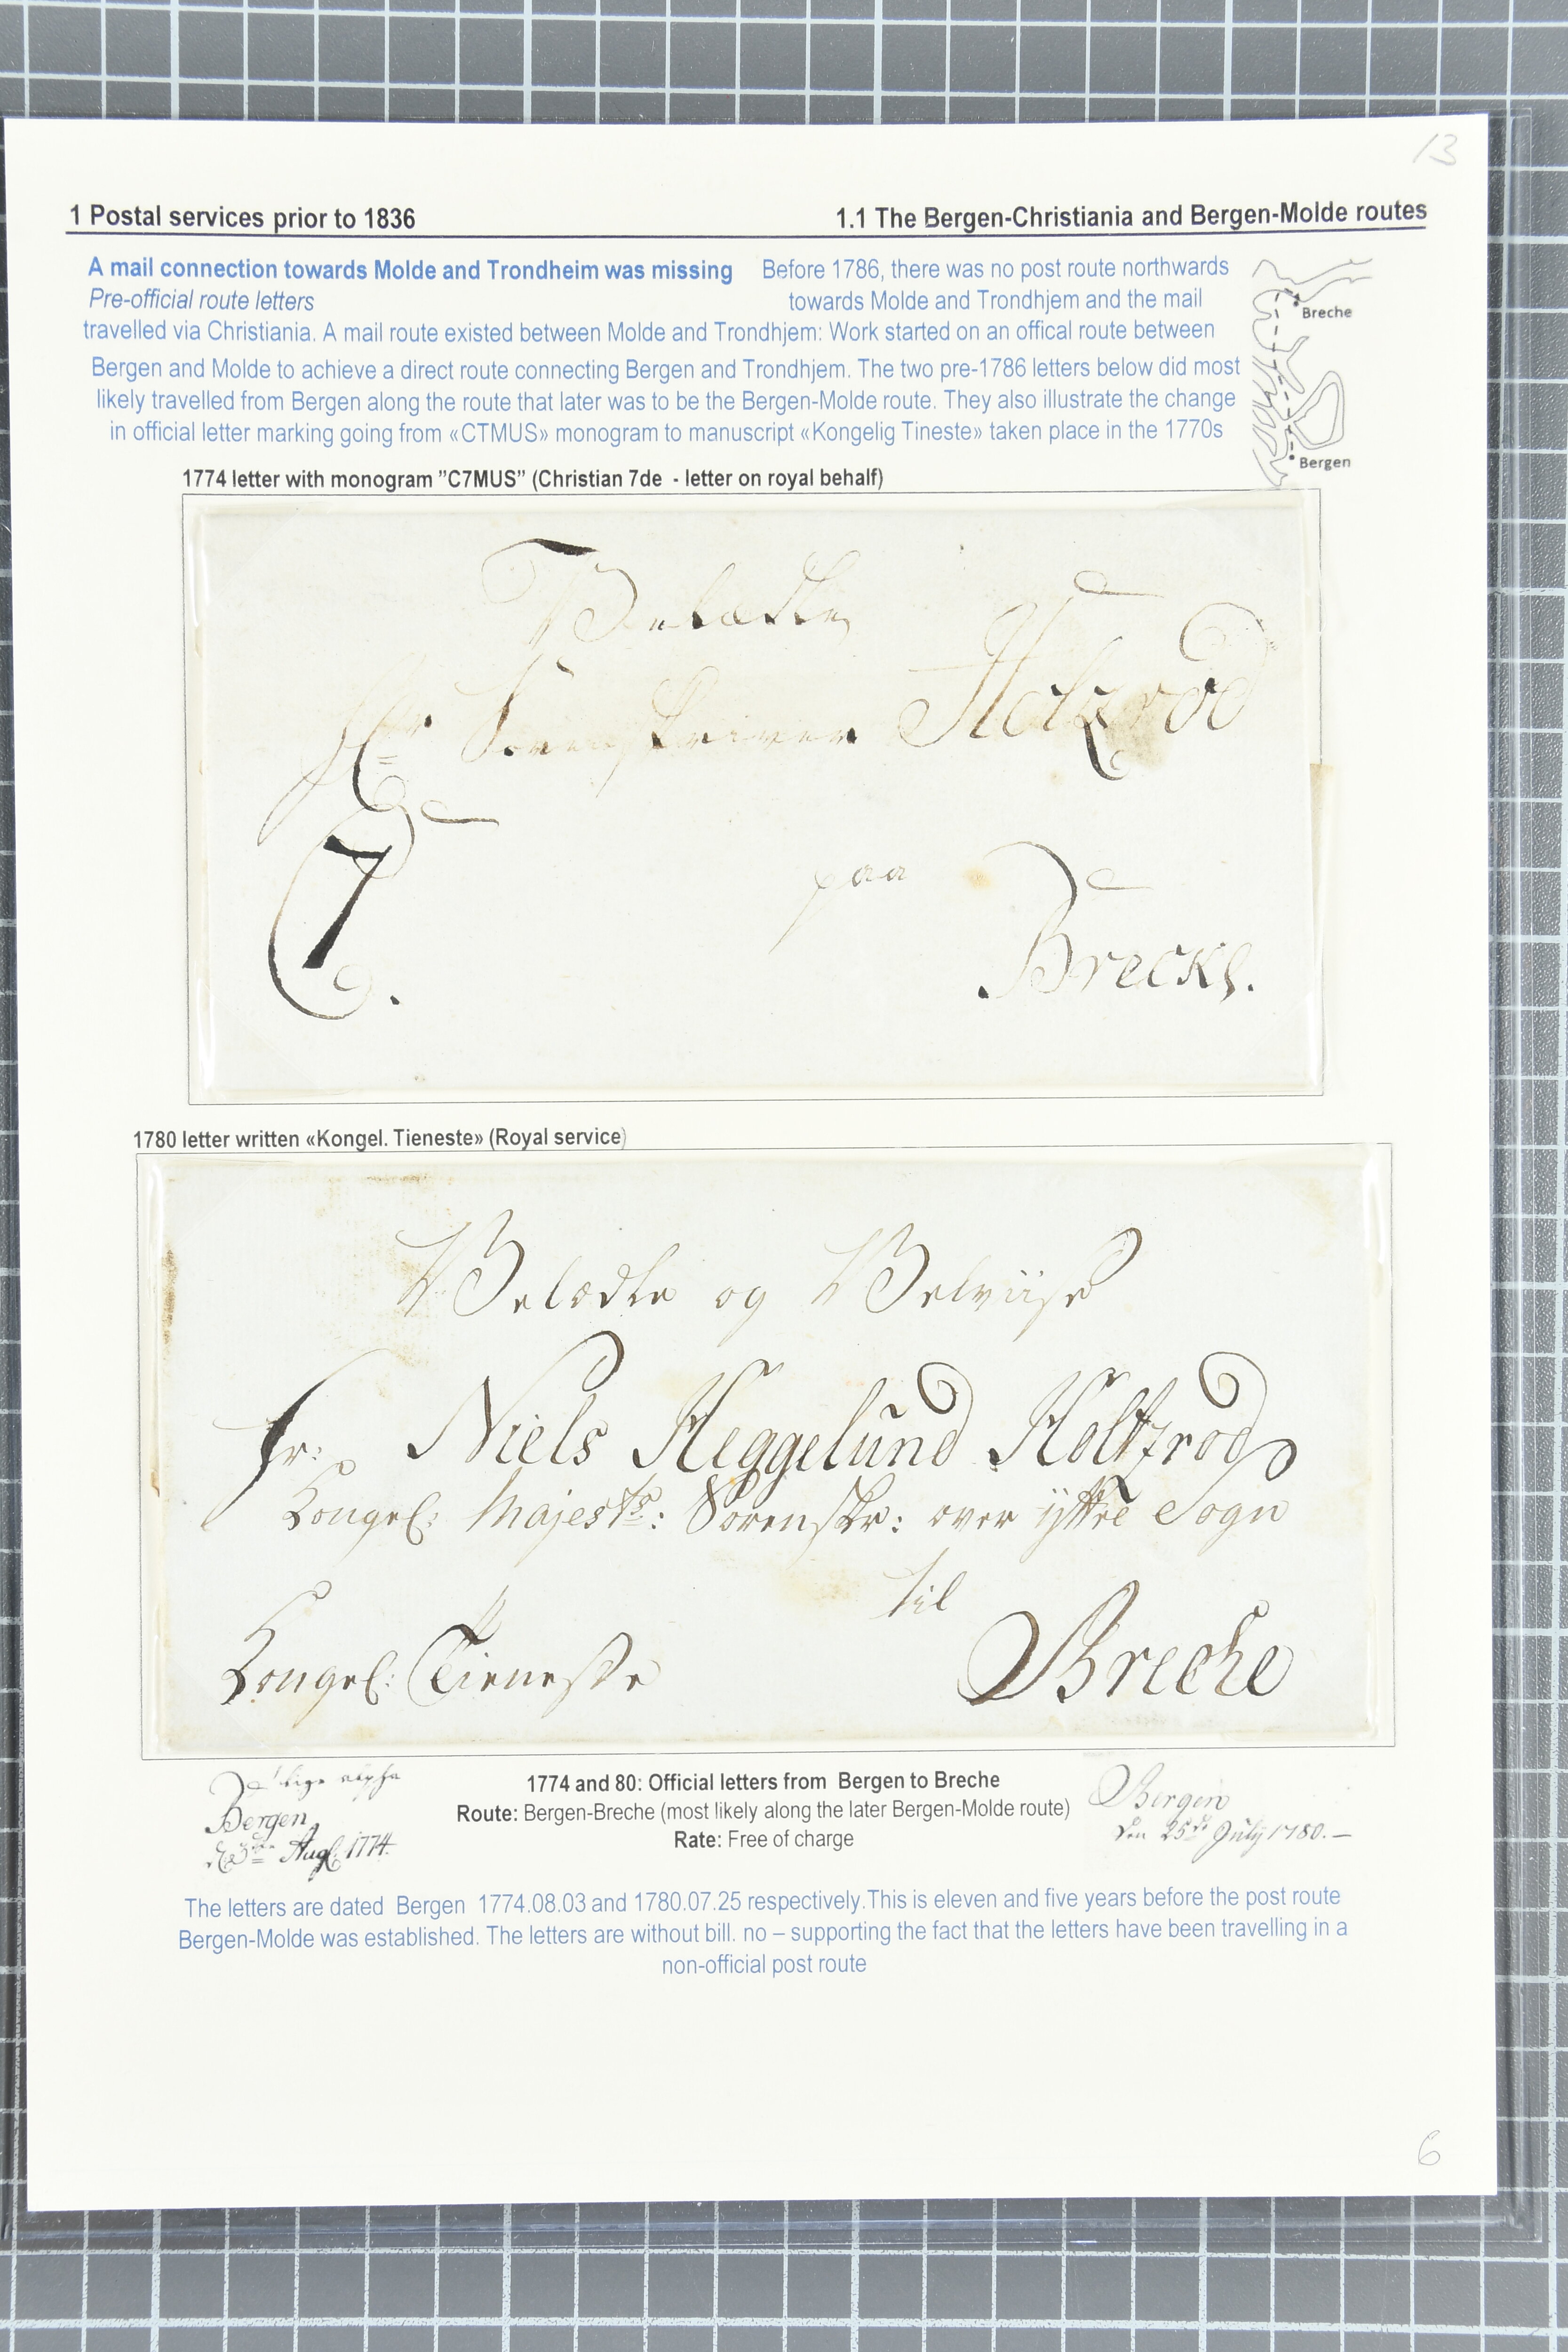 13
1 Postal services prior to 1836
1.1 The Bergen-Christiania and Bergen-Molde routes
A mail connection towards Molde and Trondheim was missing Before 1786, there was no post route northwards
Pre-official route letters towards Molde and Trondhjem and the mail
travelled via Christiania. A mail route existed between Molde and Trondhjem: Work started on an offical route between
Bergen and Molde to achieve a direct route connecting Bergen and Trondhjem. The two pre-1786 letters below did most
likely travelled from Bergen along the route that later was to be the Bergen-Molde route. They also illustrate the change
in official letter marking going from «CTMUS» monogram to manuscript «Kongelig Tineste» taken place in the 1770s
Breche
Bergen
1774 letter with monogram ”C7MUS” (Christian 7de - letter on royal behalf)
Velædle
Hr Sorenskriver Holzrod
C7
paa
Brecke.
1780 letter written «Kongel. Tieneste» (Royal service)
Velædle og Velviise
Hr: Niels Heggelund Holtzrod
Kongel: Majests: Sorenskr: over ÿttre Sogn
til
Kongel: Tieneste
Breche
Bergen
Augt 1774.
1774 and 80: Official letters from Bergen to Breche
Route: Bergen-Breche (most likely along the later Bergen-Molde route)
Rate: Free of charge
Bergen
den 25de Julÿ 1780.—
The letters are dated Bergen 1774.08.03 and 1780.07.25 respectively.This is eleven and five years before the post route
Bergen-Molde was established. The letters are without bill. no – supporting the fact that the letters have been travelling in a
non-official post route
6